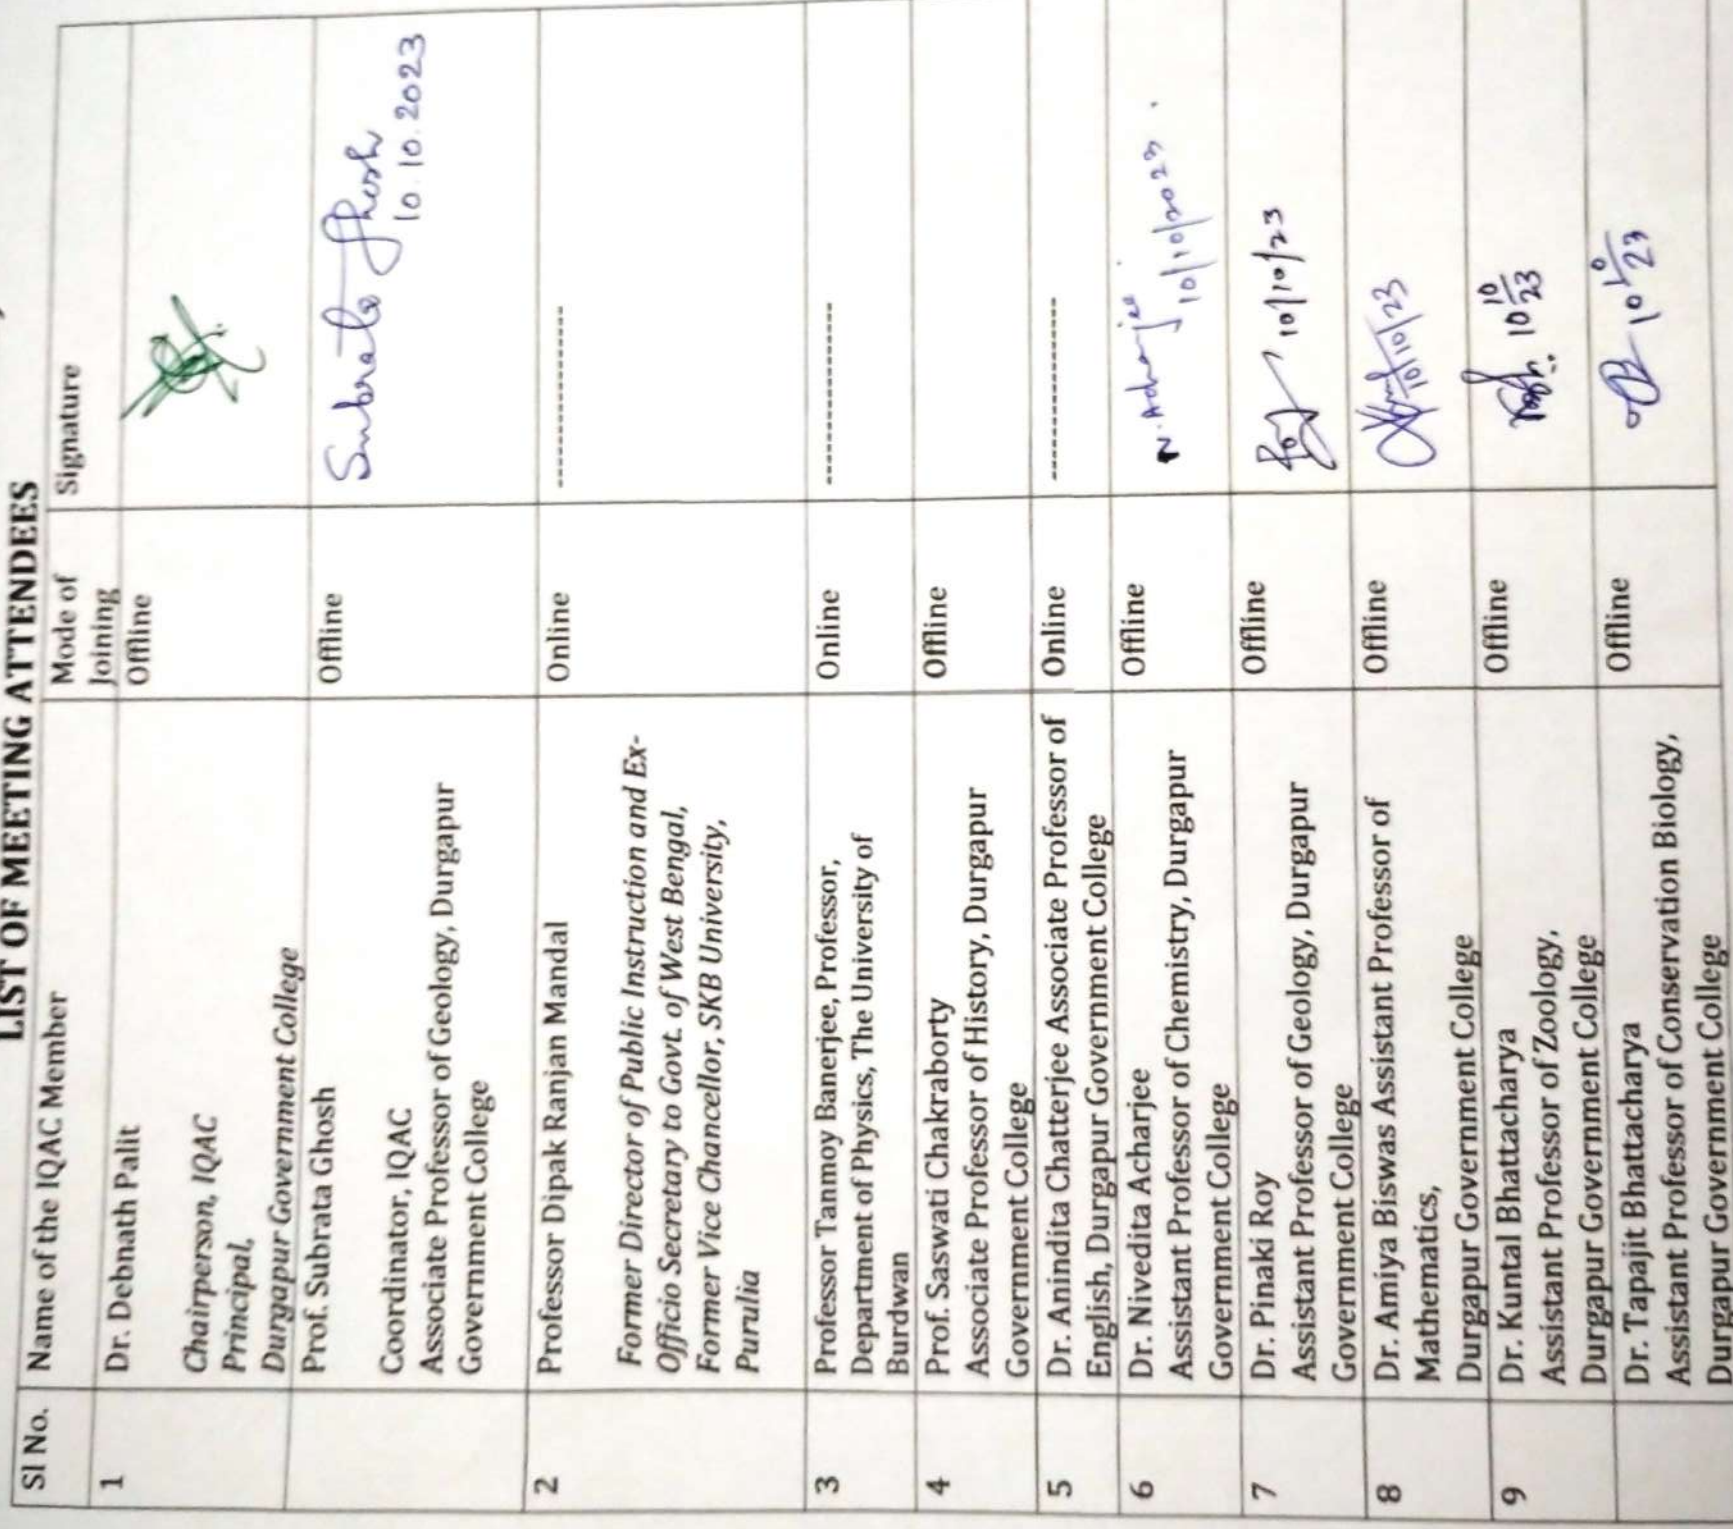 LIST OF MEETING ATTENDEES
Sl No.
Name of the IQAC Member
Mode of
Joining
Signature
1
Dr. Debnath Palit
Chairperson, IQAC
Principal,
Durgapur Government College
Offline
Prof. Subrata Ghosh
Coordinator, IQAC
Associate Professor of Geology, Durgapur
Government College
Offline
Subrata Ghosh
10.10.2023
2
Professor Dipak Ranjan Mandal
Former Director of Public Instruction and Ex-
Officio Secretary to Govt. of West Bengal,
Former Vice Chancellor, SKB University,
Purulia
Online
----------------
3
Professor Tanmoy Banerjee, Professor,
Department of Physics, The University of
Burdwan
Online
----------------
4
Prof. Saswati Chakraborty
Associate Professor of History, Durgapur
Government College
Offline
5
Dr. Anindita Chatterjee Associate Professor of
English, Durgapur Government College
Online
----------------
6
Dr. Nivedita Acharjee
Assistant Professor of Chemistry, Durgapur
Government College
Offline
N. Acharjee
10/10/2023.
7
Dr. Pinaki Roy
Assistant Professor of Geology, Durgapur
Government College
Offline
10/10/23
8
Dr. Amiya Biswas Assistant Professor of
Mathematics,
Durgapur Government College
Offline
10/10/23
9
Dr. Kuntal Bhattacharya
Assistant Professor of Zoology,
Durgapur Government College
Offline
10 10/23
Dr. Tapajit Bhattacharya
Assistant Professor of Conservation Biology,
Durgapur Government College
Offline
10 10/23